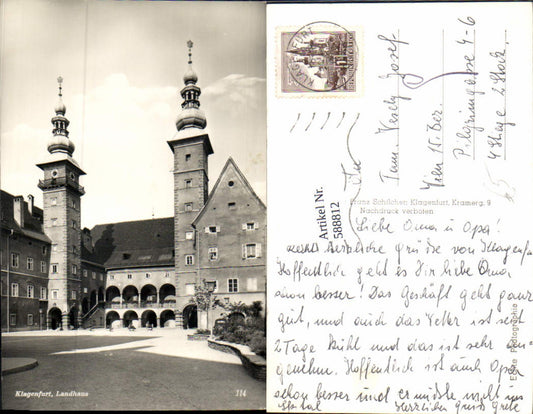 Klagenfurt, Landhaus
114
KLAGENFURT
Fam. Vesely Josef
Wien 15 Ber.
Pilgerimgasse 4-6
4 Stiege 2 Stock
Franz Schilcher, Klagenfurt, Kramerg. 9
Nachdruck verboten
Artikel Nr.
588812
Echte Photographie
Liebe Oma u Opa!
Herzliche Grüße von Klagenfu
Hoffentlich geht es Dir liebe Oma
schon besser! Das Geschäft geht ganz
gut, und auch das Wetter ist seit
2 Tage kühl und das ist sehr an-
genehm. Hoffentlich ist auch Opa
schon besser und er müßte nicht ins
Herzlichen Gruß Grete